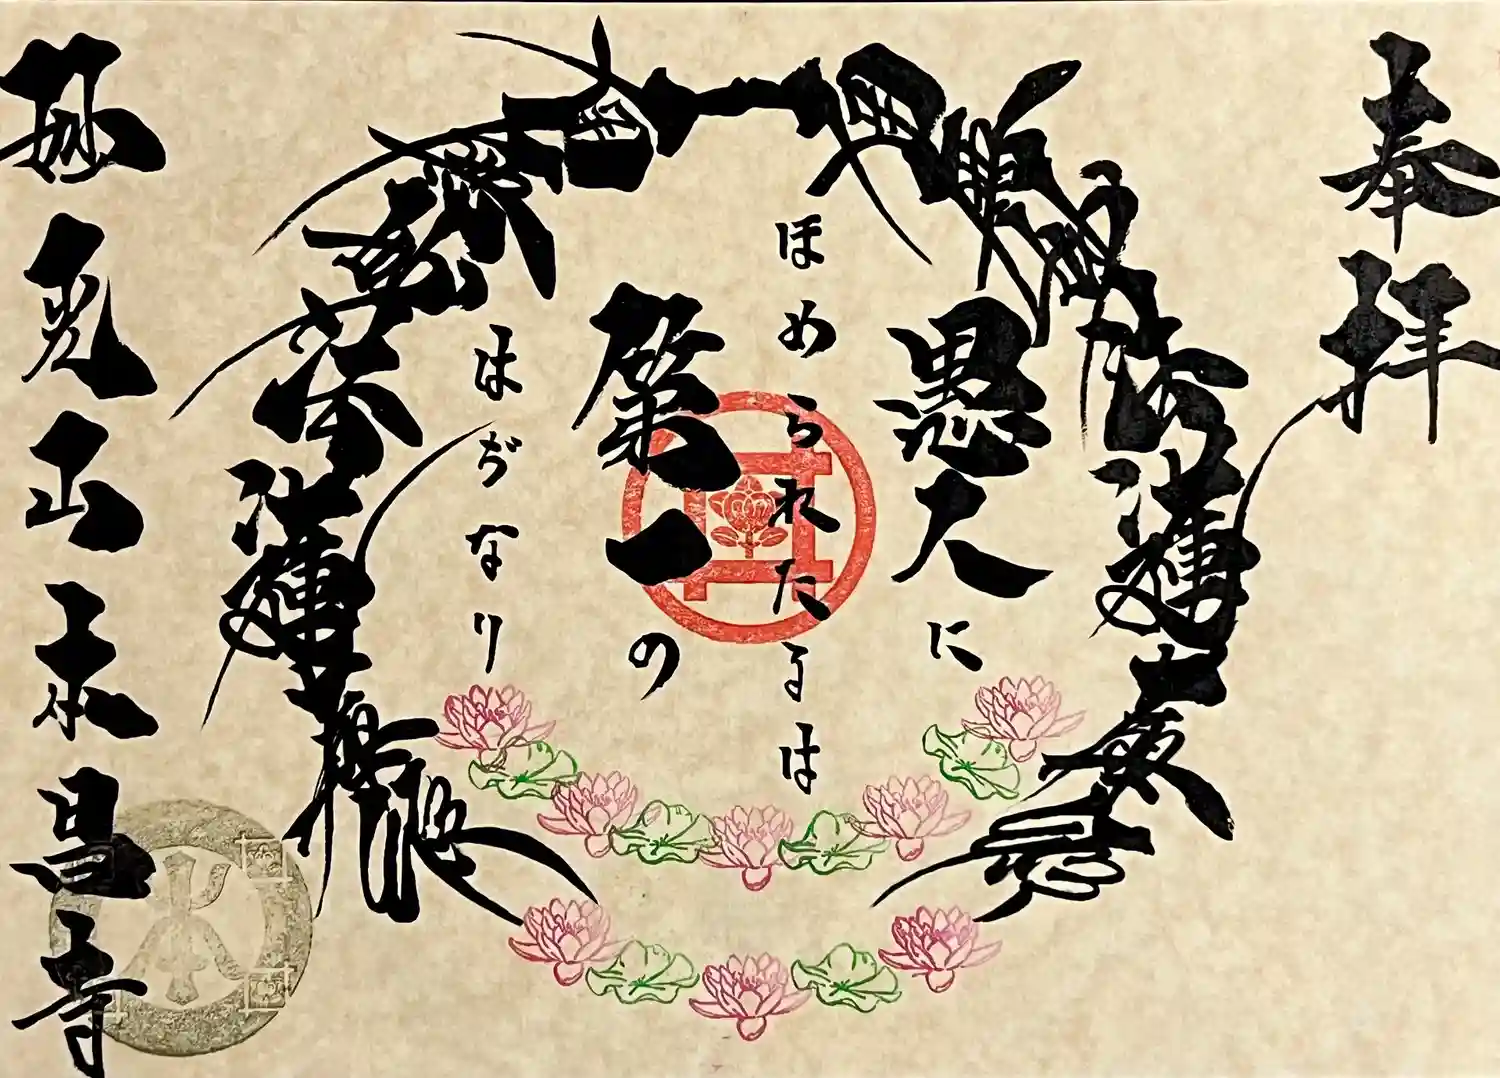 奉拝
南無妙法蓮華経
愚人に
ほめられたるは
第一の
はぢなり
南無妙法蓮華経
妙光山本昌寺